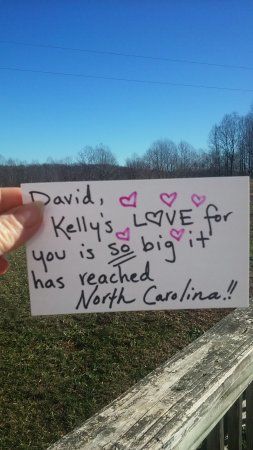 David,
Kelly's LOVE for
you is so big it
has reached
North Carolina!!